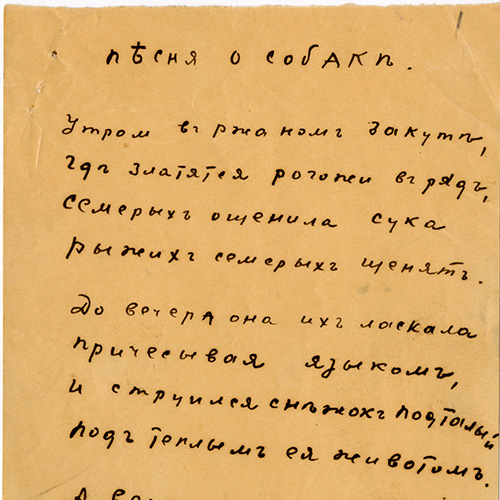 пѣсня о собАКѣ.
Утром въ ржаномъ закутѣ,
гдѣ златятся рогожи въ рядъ,
Семерыхъ ощенила сука
рыжихъ семерыхъ щенятъ.
До вечерА она ихъ ласкала
причесывая языкомъ,
и струился снѣжокъ подталый
подъ теплымъ ея животомъ.
А